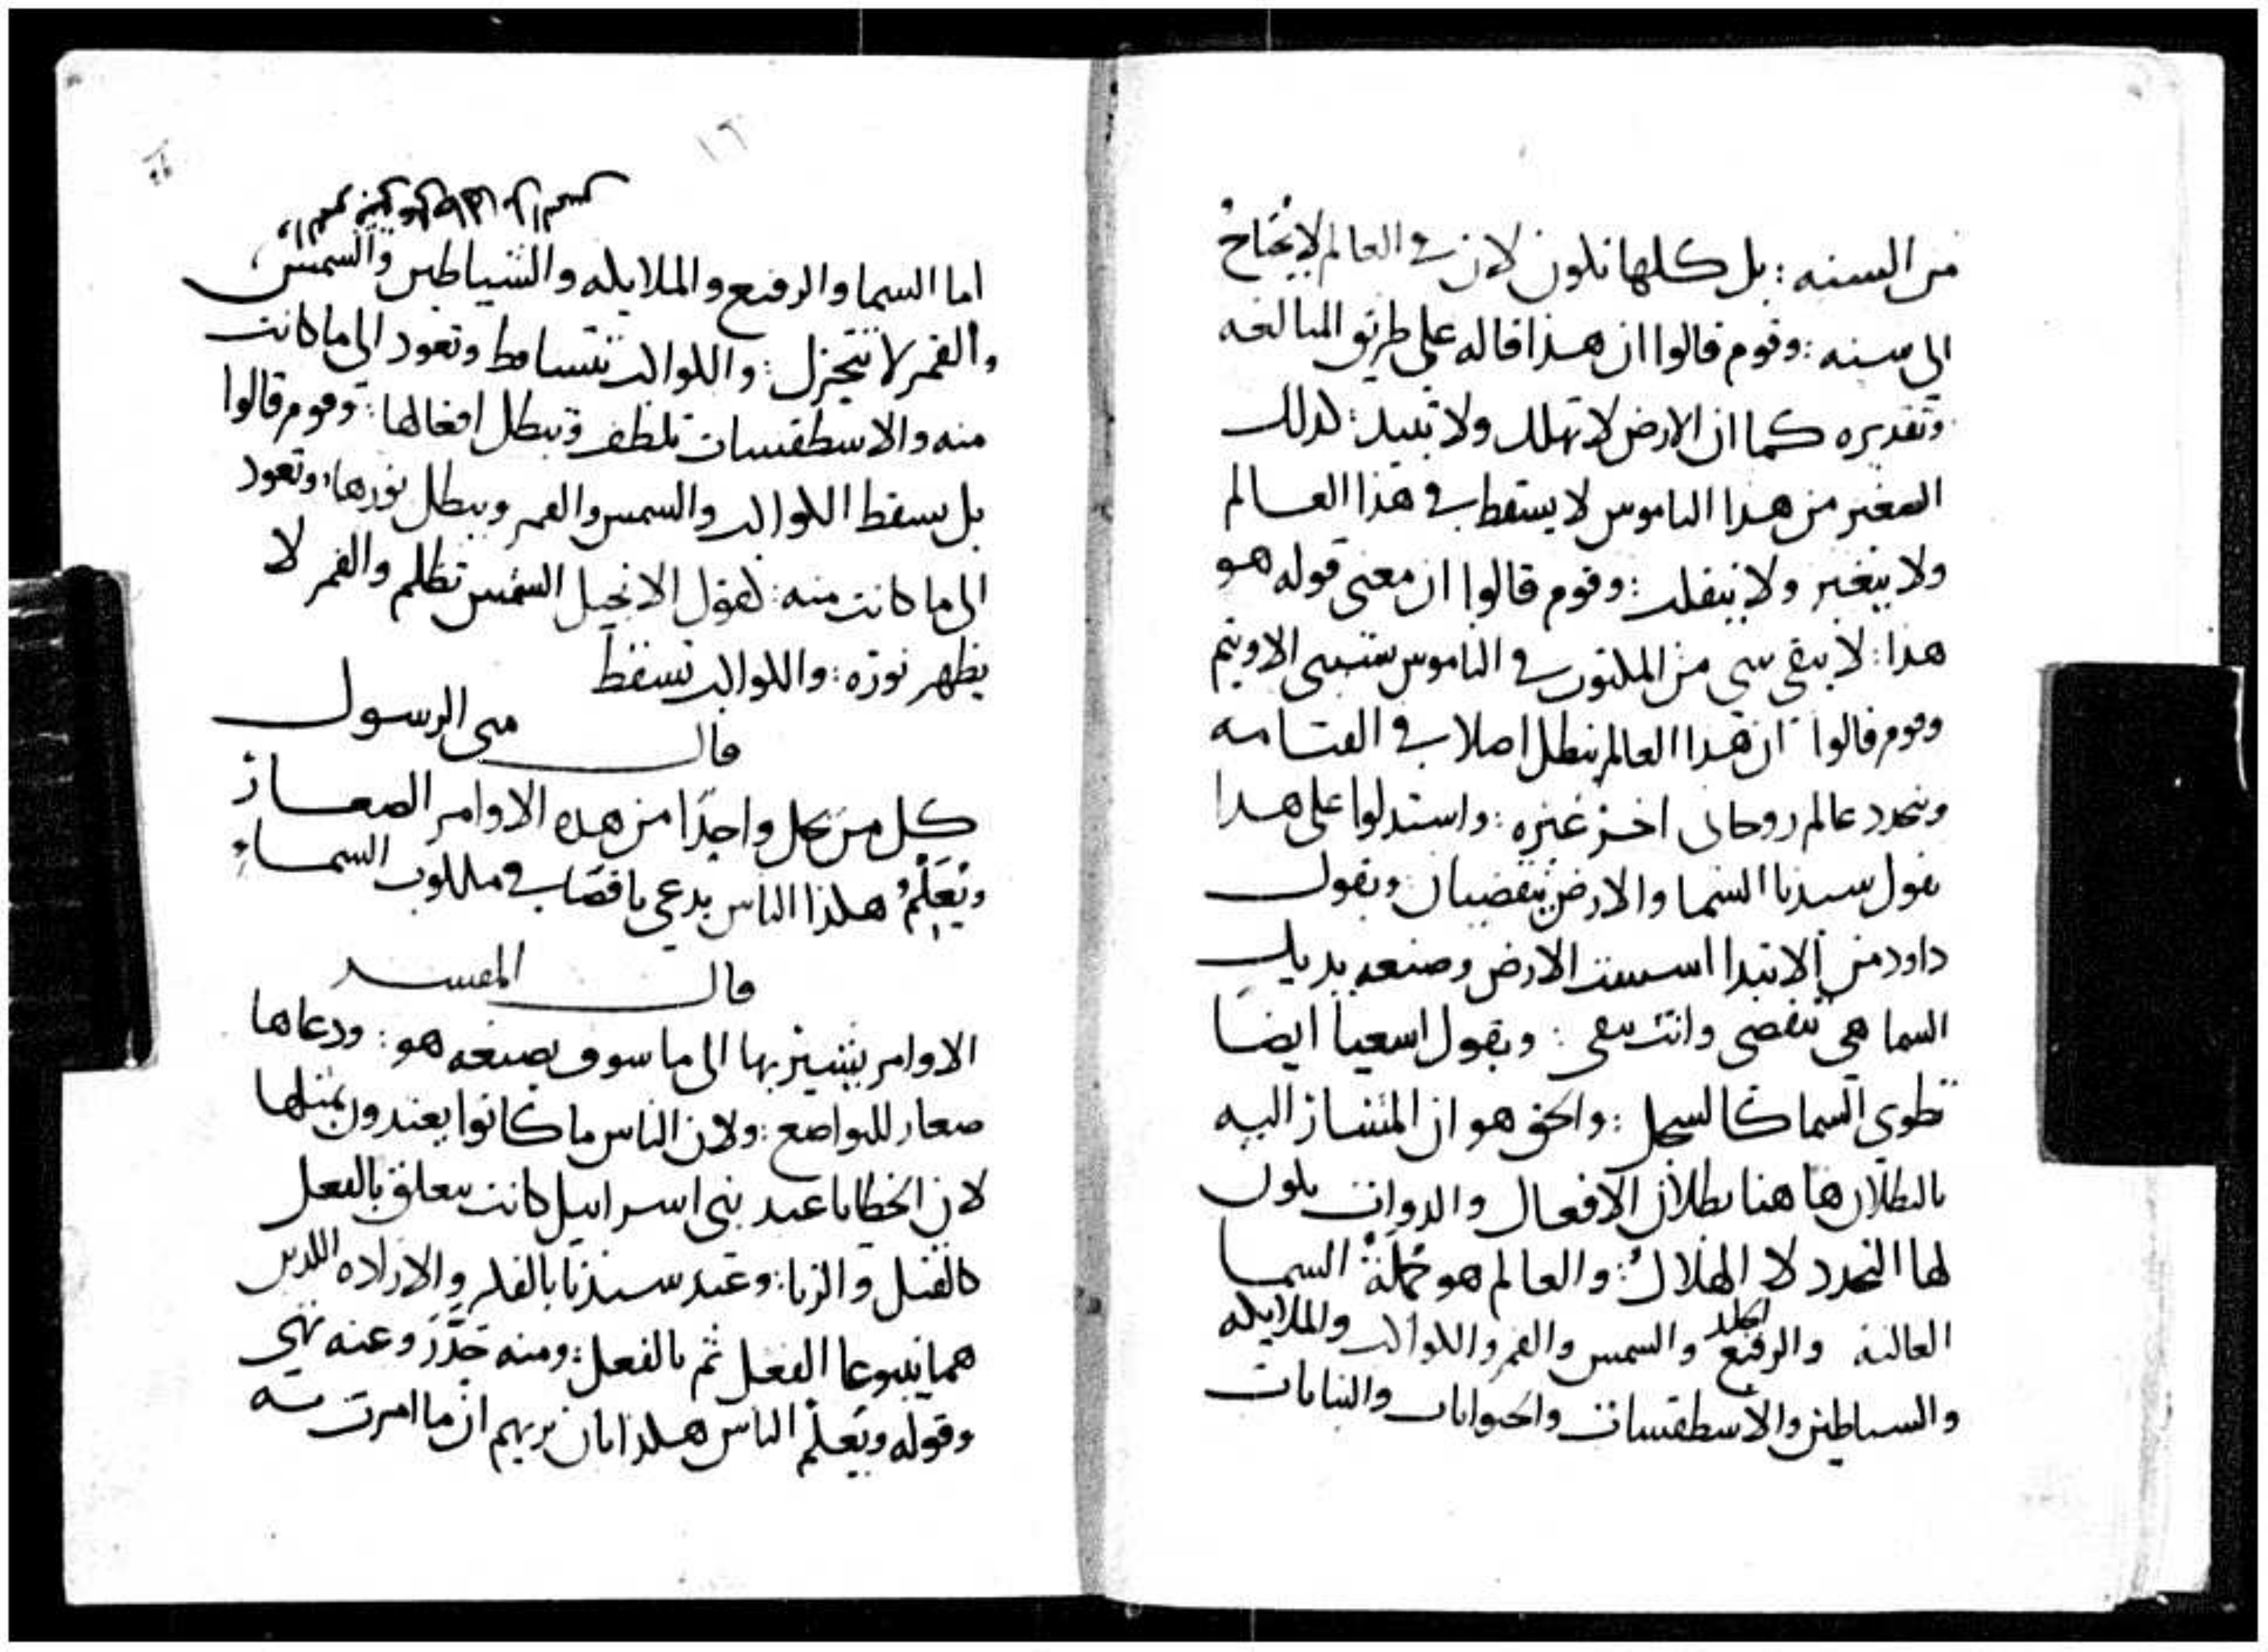 من السنه : بل كلها تكون لان في العالم لا يحتاج
الى سنه : وقوم قالوا ان هذا قاله على طريق المبالغه
وتقديره كما ان الارض لا تهلك ولا تبيد : كذلك
الصغير من هذا الناموس لا يسقط في هذا العالم
ولا يتغير ولا ينفك : وقوم قالوا ان معنى قوله هو
هذا : لا يبقى شي من المكتوب في الناموس الا ويتم
وقوم قالوا ان هذا العالم يبطل اصلا في القيامه
ويتجدد عالم روحاني اخر غيره : واستدلوا على هذا
بقول سيدنا السما والارض ينقضيان وبقول
داود من الابتدا اسست الارض وصنعه يديك
السما هي تنقضي وانت تبقى : وبقول اسعيا ايضا
تطوي السما كالسجل : والحق هو ان المشار اليه
بالبطلان ها هنا بطلان الافعال والدوات يكون
لها التجدد لا الهلاك : والعالم هو جملة السما
العاليه والرقيع والسمس والقمر والكواكب والملايكه
والسياطين والاسطقسات والحيوانات والنباتات
١٢
اما السما والرقيع والملايكه والشياطين والشمس
والقمر لا تتجزل : والكواكب تتساقط وتعود الى ما كانت
منه والاسطقسات تلطف وتبطل افعالها : وقوم قالوا
بل تسقط الكواكب والسمس والقمر ويبطل نورها : وتعود
الى ما كانت منه : كقول الانجيل الشمس تظلم والقمر لا
يظهر نوره : والكواكب تسقط
قال متى الرسول
كل من يحل واحدا من هذه الاوامر الصغار
ويعلم هكذا الناس يدعى ناقصا في ملكوت السماء
قال المفسر
الاوامر يشير بها الى ما سوف يصنعه هو : ودعاها
صغار للتواضع : ولان الناس ما كانوا يعتدون بمثلها
لان الخطايا عند بني اسراييل كانت تتعلق بالفعل
كالقتل والزنا : وعند سيدنا بالفكر والاراده اللدين
هما ينبوعا الفعل ثم بالفعل : ومنه حذر وعنه نهى
وقوله ويعلم الناس هكذا بان يريهم ان ما امرت به